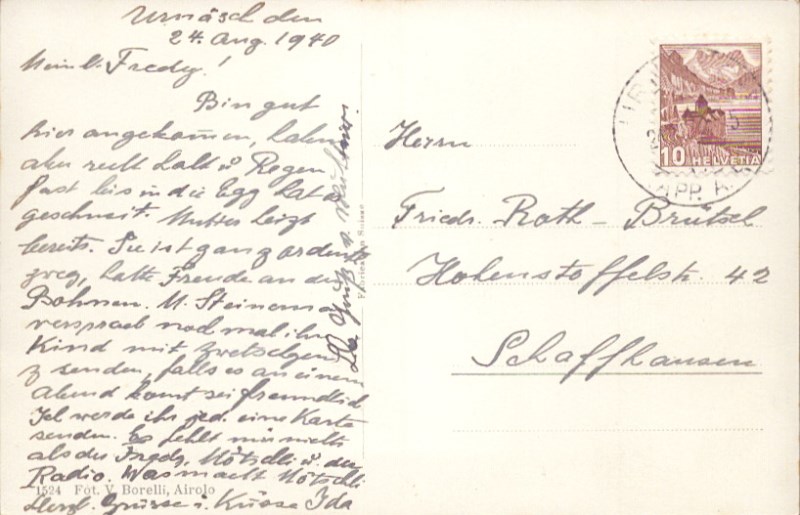 Urnäsch den
24. Aug. 1940
Mein l. Fredy!
Bin gut
hier angekom̄en, haben
aber recht kalt u Regen
fast bis in die Egg hat's
geschneit. Mutter liegt
bereits. Sie ist ganz ordentl.
zweg, hatte Freude an den
Bohnen. M. Steinemann
versprach nochmal ihr
Kind mit Zwetschgen
z senden, falls es an einem
Abend kommt sei freundlich
Ich werde ihr jed. eine Karte
senden. Es fehlt mir nichts
als der Mötschli u. der
Radio. Was macht Mötschli
Herzl. Grüsse u. Küsse Ida
Lb. Gruss v. Mutter.
1524 Fot. V. Borelli, Airolo
Suisse
Herrn
Friedr. Roth-Brütsch
Hohenstoffelstr. 42
Schaffhausen
10 HELVETIA
APP.